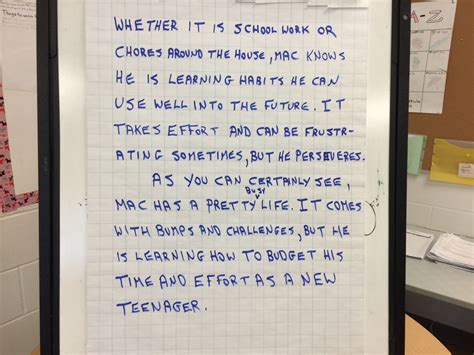 WHETHER IT IS SCHOOL WORK OR
CHORES AROUND THE HOUSE, MAC KNOWS
HE IS LEARNING HABITS HE CAN
USE WELL INTO THE FUTURE. IT
TAKES EFFORT AND CAN BE FRUSTR-
ATING SOMETIMES, BUT HE PERSEVERES.
AS YOU CAN CERTAINLY SEE,
BUSY
MAC HAS A PRETTY LIFE. IT COMES
WITH BUMPS AND CHALLENGES, BUT HE
IS LEARNING HOW TO BUDGET HIS
TIME AND EFFORT AS A NEW
TEENAGER.
A-Z